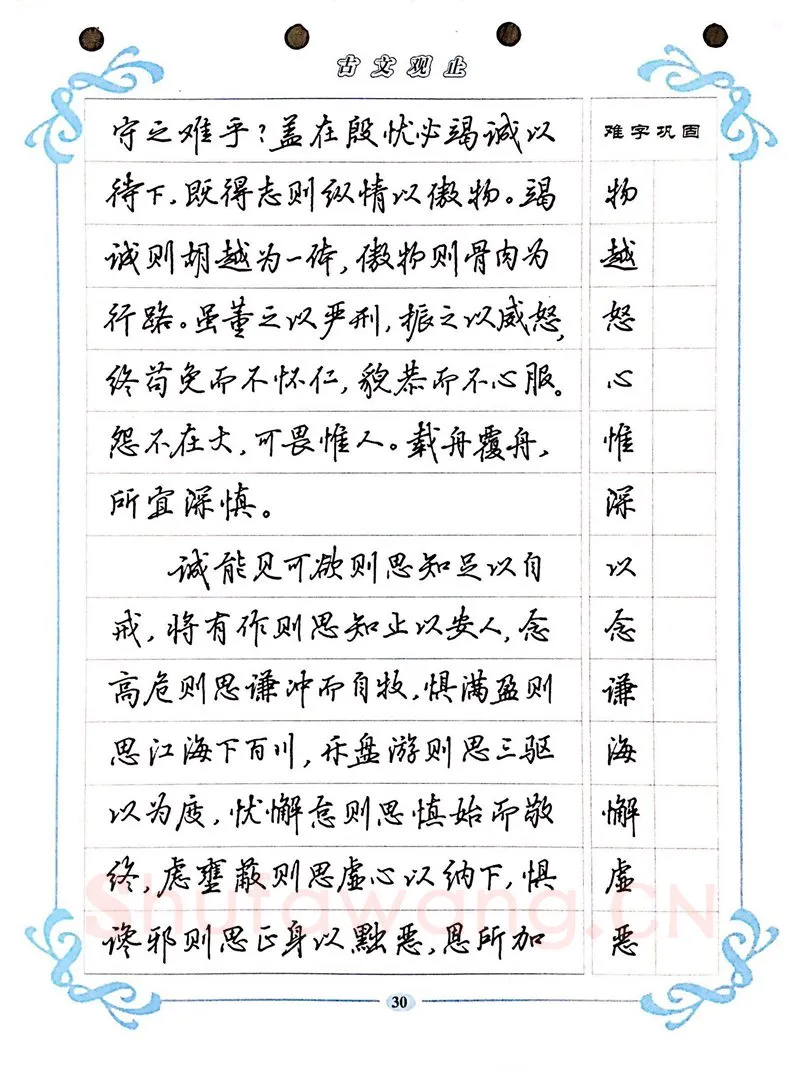 古文观止
守之难乎？盖在殷忧必竭诚以
待下，既得志则纵情以傲物。竭
诚则胡越为一体，傲物则骨肉为
行路。虽董之以严刑，振之以威怒，
终苟免而不怀仁，貌恭而不心服。
怨不在大，可畏惟人。载舟覆舟，
所宜深慎。
诚能见可欲则思知足以自
戒，将有作则思知止以安人，念
高危则思谦冲而自牧，惧满盈则
思江海下百川，乐盘游则思三驱
以为度，忧懈怠则思慎始而敬
终，虑壅蔽则思虚心以纳下，惧
谗邪则思正身以黜恶，恩所加
难字巩固
物
越
怒
心
惟
深
以
念
谦
海
懈
虚
恶
Shufawang.CN
30